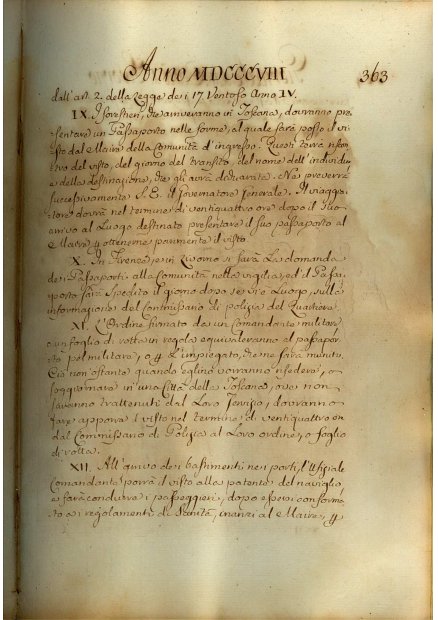 Anno MDCCCVIII 363
dall'art. 2. della Legge dei 17. Ventoso Anno IV.
IX. I forestieri, che arriveranno in Toscana, dovranno pre=
sentare un Passaporto nelle forme, al quale sarà posto il vi=
sto dal Maire della Comunità d'ingresso. Questi terrà riscon=
tro del visto, del giorno del transito, del nome dell'individuo
e della destinazione, che gli avrà dichiarata. Ne preverrà
successivamente S. E. il Governatore Generale. Il viaggia=
tore dovrà nel termine di ventiquattro ore dopo il suo
arrivo al Luogo destinato presentare il suo passaporto al
Maire, p ottenerne parimente il visto.
X. In Firenze, e in Livorno si farà la domanda
dei Passaporti alla Comunità nella vigilia, ed il Passa=
porto sarà spedito il giorno dopo, se vi è Luogo, sulle
informazioni del Commissario di polizia del Quartiere.
XI. L'Ordine firmato da un Comandante militare,
o un foglio di rotta in regola equivaleranno al passapor=
to pel militare, o p l'impiegato, che ne sarà munito.
Ciò non ostante quando eglino vorranno risedere, o
soggiornare in una Città della Toscana, ove non
saranno trattenuti dal Loro servizio, dovranno
fare apporre il visto nel termine di ventiquattro ore
dal Commissario di Polizia al Loro ordine, o foglio
di rotta.
XII. All'arrivo dei bastimenti nei porti, l'Ufiziale
Comandante porrà il visto alla patente del naviglio,
e farà condurre i passeggieri, dopo essersi conforma=
to ai regolamenti di Sanità, innanzi al Maire, p